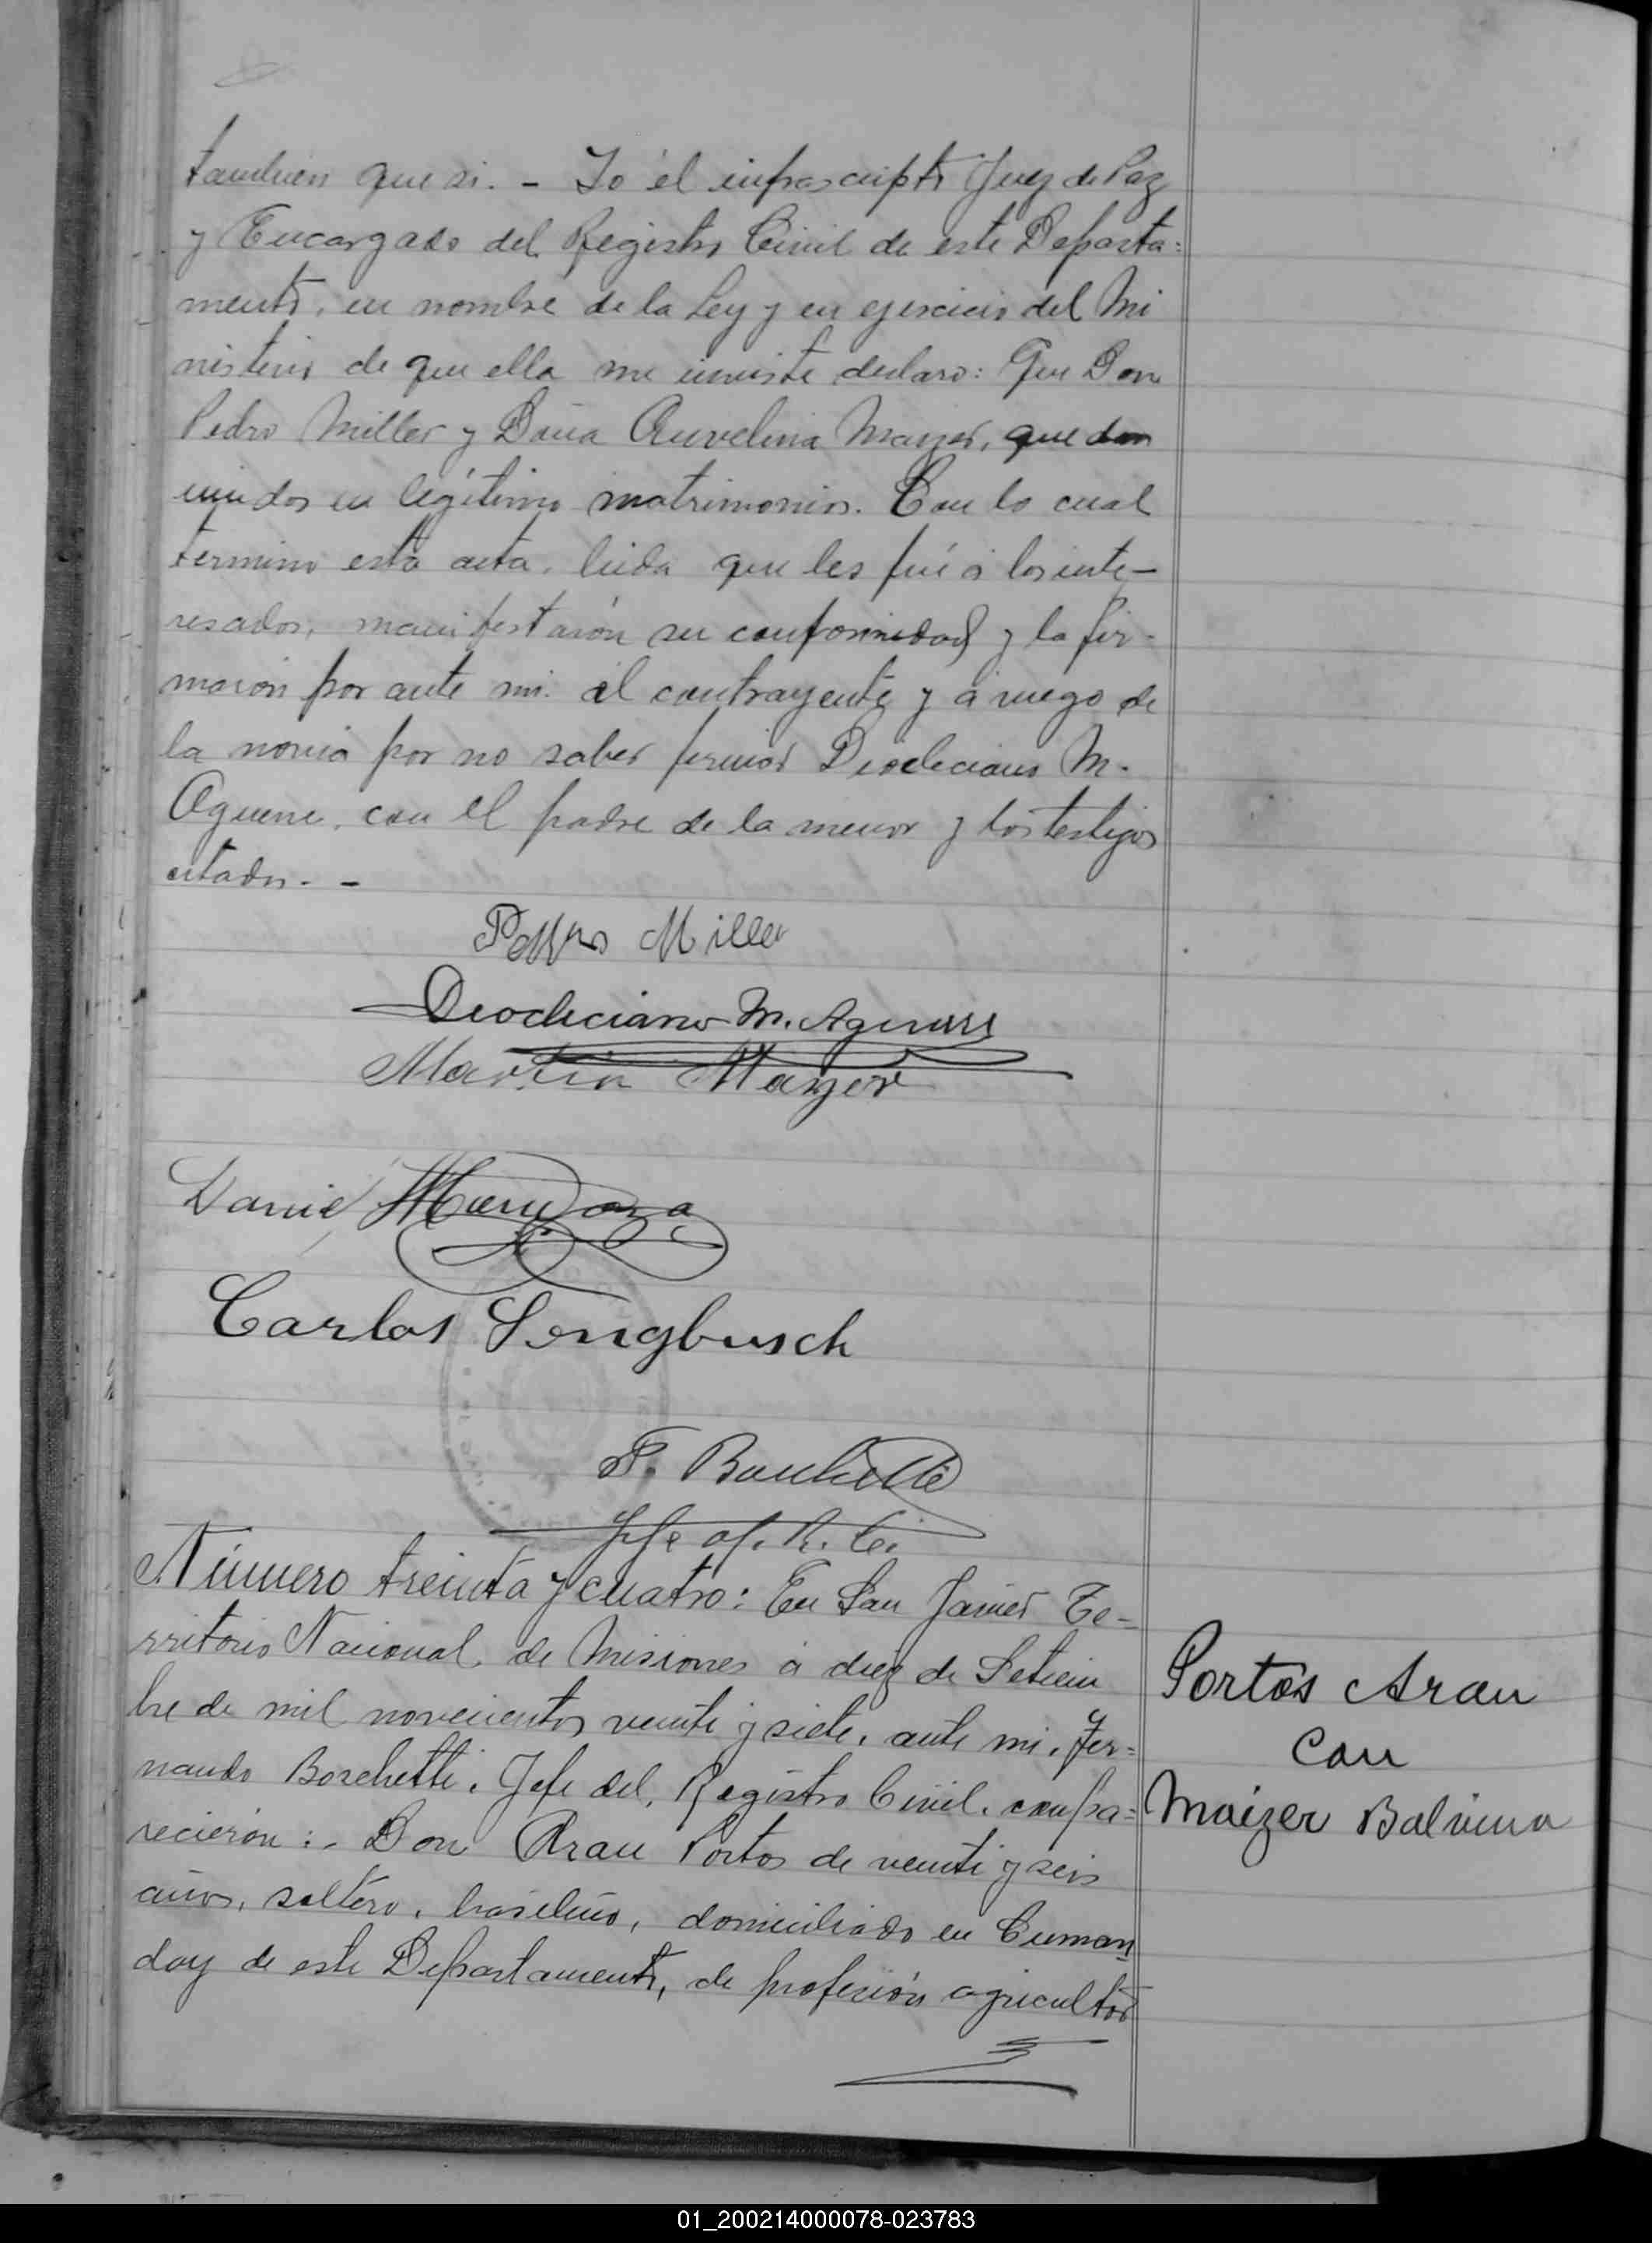 también que si. - Yo el infrascripto Juez de Paz
y Encargado del Registro Civil de este Departa=
mento, en nombre de la Ley y en ejercicio del Mi
nisterio de que ella me inviste declaro: Que Don
Pedro Miller y Doña Auvelina Mayer, quedan
unidos en legítimo matrimonio. Con lo cual
termino esta acta, leida que les fué á los inte-
resados, manifestarón su conformidad y la fir-
marón por ante mi el contrayente y á ruego de
la novia por no saber firmar Diocleciano M.
Aguerre, con el padre de la menor y los testigos
citados. -
Pedro Miller
Deocleciano M. Aguerre
Martin Mayer
Daniel Mendoza
Carlos Sengbusch
F. Borchetti
Jefe of. R. C.
Número treinta y cuatro: En San Javier Te-
rritorio Nacional de Misiones á diez de Setiem
bre de mil novecientos veinte y siete, ante mi, Fer=
nando Borchetti, Jefe del Registro Civil, compa=
recierón: Don Arau Portos de veinte y seis
años, soltero, brasileño, domiciliado en Cuman
day de este Departamento, de profesión agricultor
Portos Arau
con
Maizer Balvina
01_200214000078-023783